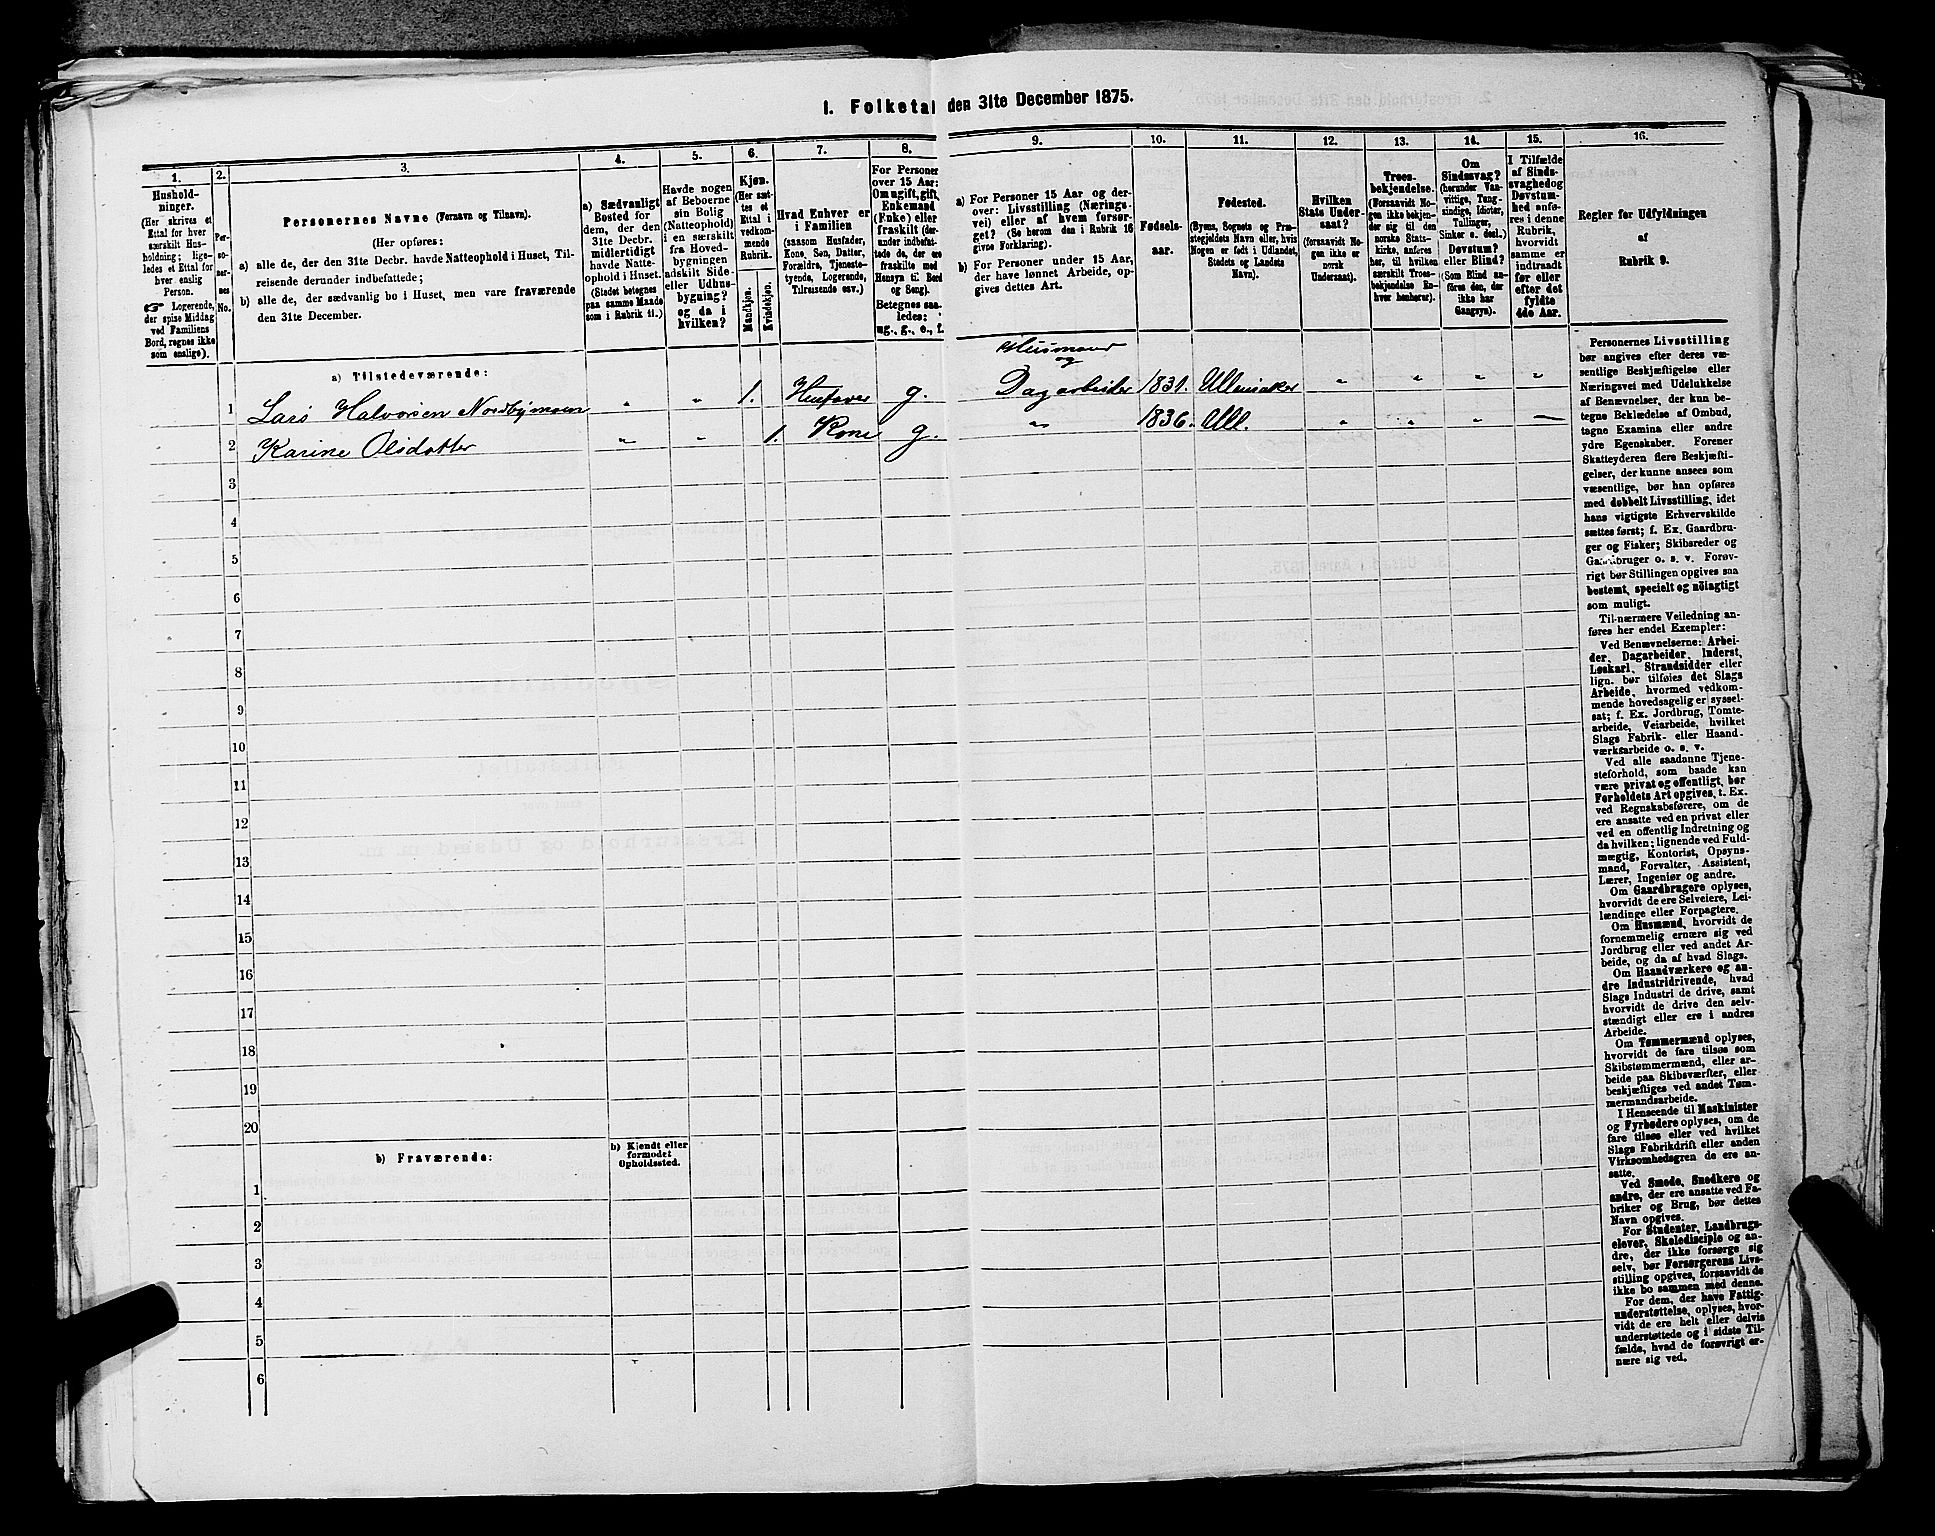 1. Folketal den 31te December 1875.
1.
Hushold-
ninger.
(Her skrives et
Ettal for hver
særskilt Hus-
holdning; lige-
ledes et Ettal for
hver enslig
Person.
☞ Logerende,
der spise Middag
ved Familiens
Bord, regnes ikke
som enslige).
2.
Per-
so-
ner-
nes
No.
3.
Personernes Navne (Fornavn og Tilnavn).
(Her opføres:
a) alle de, der den 31te Decbr. havde Natteophold i Huset, Til-
reisende derunder indbefattede;
b) alle de, der sædvanlig bo i Huset, men vare fraværende
den 31te December.
4.
a) Sædvanligt
Bosted for
dem, der den
31te Decbr.
midlertidigt
havde Natte-
ophold i Huset.
(Stedet betegnes
paa samme Maade
som i Rubrik 11.)
5.
Havde nogen
af Beboerne
sin Bolig
(Natteophold)
i en særskilt
fra Hoved-
bygningen
adskilt Side-
eller Udhus-
bygning?
og da i
hvilken?
6.
Kjøn.
(Her sæt-
tes et
Ettal i
vedkom-
mende
Rubrik.
Mandkjøn.
Kvindekjøn.
7.
Hvad Enhver er
i Familien
(saasom Husfader,
Kone, Søn, Datter,
Forældre, Tjeneste-
tyende, Logerende,
Tilreisende osv.)
8.
For Personer
over 15 Aar:
Om ugift, gift,
Enkemand
(Enke) eller
fraskilt (der-
under indbefat-
tede de, der ere
fraskilte med
Hensyn til Bord
og Seng).
Betegnes saa-
ledes:
ug., g., e., f.
9.
a) For Personer 15 Aar og der-
over: Livsstilling (Nærings-
vei) eller af hvem forsør-
get? (Se herom den i Rubrik 16
givne Forklaring).
b) For Personer under 15 Aar,
der have lønnet Arbeide, op-
gives dettes Art.
10.
Fødsels-
aar.
11.
Fødested.
(Byens, Sognets og Præ-
stegjeldets Navn eller, hvis
Nogen er født i Udlandet,
Stedets og Landets
Navn).
12.
Hvilken
Stats Under-
saat?
(forsaavidt No-
gen ikke er
norsk
Undersaat).
13.
Troes-
bekjendelse.
(Forsaavidt No-
gen ikke bekjen-
der sig til den
norske Stats-
kirke, anføres
her, til hvilken
særskilt Troes-
bekjendelse En-
hver henhører).
14.
Om
Sindssvag?
(herunder Van-
vittige, Tung-
sindige, Idioter,
Tullinger,
Sinker o. desl.)
Døvstum?
eller Blind?
(Som Blind an-
føres den, der
ikke har
Gangsyn).
15.
I Tilfælde
af Sinds-
svaghed og
Døvstum-
hed anfø-
res i denne
Rubrik,
hvorvidt
samme er
indtraadt
før eller
efter det
fyldte
4de Aar.
16.
Regler for Udfyldningen
af
Rubrik 9.
a) Tilstedeværende:
Husmand
og
1 Lars Halvorsen Nordbymoen " " 1. Husfader g. Dagarbeider 1831. Ullinsaker " " " "
2 Karine Olsdatter " " 1. Kone g. " 1836. Ull. " " " —
3
4
5
6
7
8
9
10
11
12
13
14
15
16
17
18
19
20
b) Fraværende:
b) Kjendt eller
formodet
Opholdssted.
1
2
3
4
5
6
Personernes Livsstilling
bør angives efter deres væ-
sentlige Beskjæftigelse eller
Næringsvei med Udelukkelse
af Benævnelser, der kun be-
tegne Beklædelse af Ombud,
tagne Examina eller andre
ydre Egenskaber. Forener
Skatteyderen flere Beskjæfti-
gelser, der kunne ansees som
væsentlige, bør han opføres
med dobbelt Livsstilling, idet
hans vigtigste Erhvervskilde
sættes først; f. Ex. Gaardbru-
ger og Fisker; Skibsreder og
Gaardbruger o. s. v. Forøv-
rigt bør Stillingen opgives saa
bestemt, specielt og nöiagtigt
som muligt.
Til nærmere Veiledning an-
føres her endel Exempler:
Ved Benævnelserne: Arbei-
der, Dagarbeider, Inderst,
Løskarl, Strandsidder eller
lign. bør tilføies det Slags
Arbeide, hvormed vedkom-
mende hovedsagelig er syssel-
sat; f. Ex. Jordbrug, Tomte-
arbeide, Veiarbeide, hvilket
Slags Fabrik- eller Haand-
værksarbeide o. s. v.
Ved alle saadanne Tjene-
steforhold, som baade kan
være privat og offentligt, bør
Forholdets Art opgives, f. Ex.
ved Regnskabsførere, om de
ere ansatte ved en privat eller
ved en offentlig Indretning og
da hvilken; lignende ved Fuld-
mægtig, Kontorist, Opsyns-
mand, Forvalter, Assistent,
Lærer, Ingeniør og andre.
Om Gaardbrugere oplyses,
hvorvidt de ere Selveiere, Lei-
lændinge eller Forpagtere.
Om Husmænd, hvorvidt de
fornemmelig ernære sig ved
Jordbrug eller ved andet Ar-
beide, og da af hvad Slags.
Om Haandværkere og an-
dre Industridrivende, hvad
Slags Industri de drive, samt
hvorvidt de drive den selv-
stændigt eller ere i andres
Arbeide.
Om Tømmermænd oplyses,
hvorvidt de fare tilsøs som
Skibstømmermænd, eller ar-
beide paa Skibsværfter, eller
beskjæftiges ved andet Tøm-
mermandsarbeide.
I Henseende til Maskinister
og Fyrbødere oplyses, om de
fare tilsøs eller ved hvilket
Slags Fabrikdrift eller anden
Virksomhedsgren de ere an-
satte.
Ved Smede, Snedkere og
andre, der ere ansatte ved Fa-
briker og Brug, bør dettes
Navn opgives.
For Studenter, Landbrugs-
elever, Skoledisciple og an-
dre, der ikke forsørge sig
selv, bør Forsørgerens Livs-
stilling opgives, forsaavidt de
ikke bo sammen med denne.
For dem, der have Fattig-
understøttelse, oplyses, hvor-
vidt de ere helt eller delvis
understøttede og i sidste Til-
fælde, hvad de forøvrigt er-
nære sig ved.